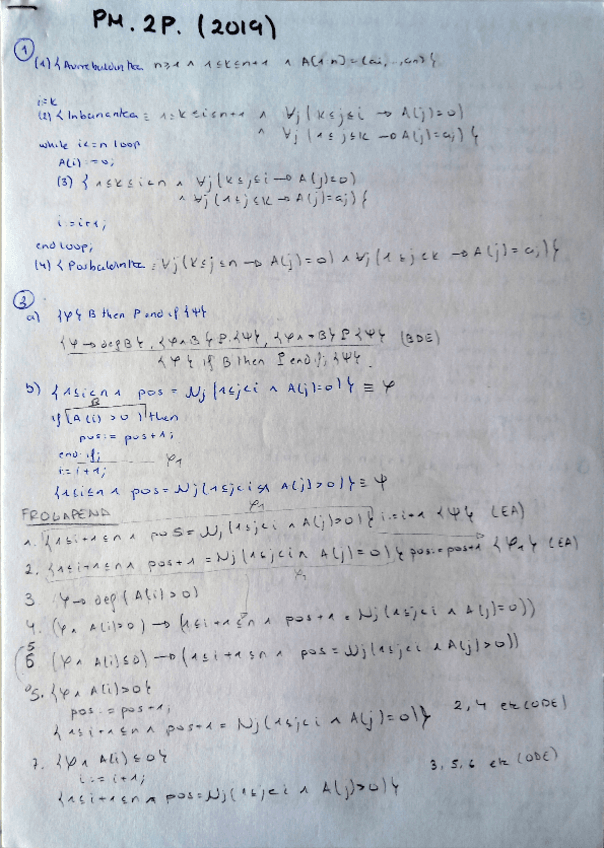 PM. 2P. (2019)
①
(1) { Aurrebaldintza n≥1 ∧ 1≤k≤n+1 ∧ A(1..n)=(a1,...,an) }
i=k
(2) { Inbariantea ≡ 1≤k≤i≤n+1 ∧ ∀j (k≤j≤i → A(j)=0)
∧ ∀j (1≤j≤k → A(j)=aj) }
while i<=n loop
A(i):=0;
(3) { 1≤k≤i≤n ∧ ∀j (k≤j≤i → A(j)=0)
∧ ∀j (1≤j≤k → A(j)=aj) }
i:=i+1;
end loop;
(4) { Postbaldintza ≡ ∀j (k≤j≤n → A(j)=0) ∧ ∀j (1≤j<k → A(j)=aj) }
②
a) {φ} B then P end if {ψ}
{φ→def B}, {φ∧B} P {ψ}, {φ∧¬B} P {ψ} (BDE)
{φ} if B then P end if; {ψ}.
b) {1≤i≤n ∧ pos = Nj (1≤j<i ∧ A(j)=0)} ≡ φ
B
if (A(i)>0) then
pos:= pos+1;
end if;
φ1
i:= i+1;
{1≤i≤n ∧ pos = Nj (1≤j<i ∧ A(j)>0)} ≡ ψ
FROGAPENA
φ1
1. {1≤i+1≤n ∧ pos = Nj (1≤j<i ∧ A(j)>0)} i:=i+1 {ψ} (EA)
2. {1≤i+1≤n ∧ pos+1 = Nj (1≤j<i ∧ A(j)=0)} pos:=pos+1 {φ1} (EA)
3. φ→def (A(i)>0)
4. (φ∧A(i)>0) → (1≤i+1≤n ∧ pos+1 = Nj (1≤j<i ∧ A(j)=0))
5
6 (φ∧A(i)≤0) → (1≤i+1≤n ∧ pos = Nj (1≤j<i ∧ A(j)>0))
5. {φ∧A(i)>0}
pos:= pos+1;
{1≤i+1≤n ∧ pos+1 = Nj (1≤j<i ∧ A(j)=0)} 2,4 etk (ODE)
7. {φ∧A(i)≤0}
i:= i+1;
3,5,6 etk (ODE)
{1≤i+1≤n ∧ pos = Nj (1≤j<i ∧ A(j)>0)}